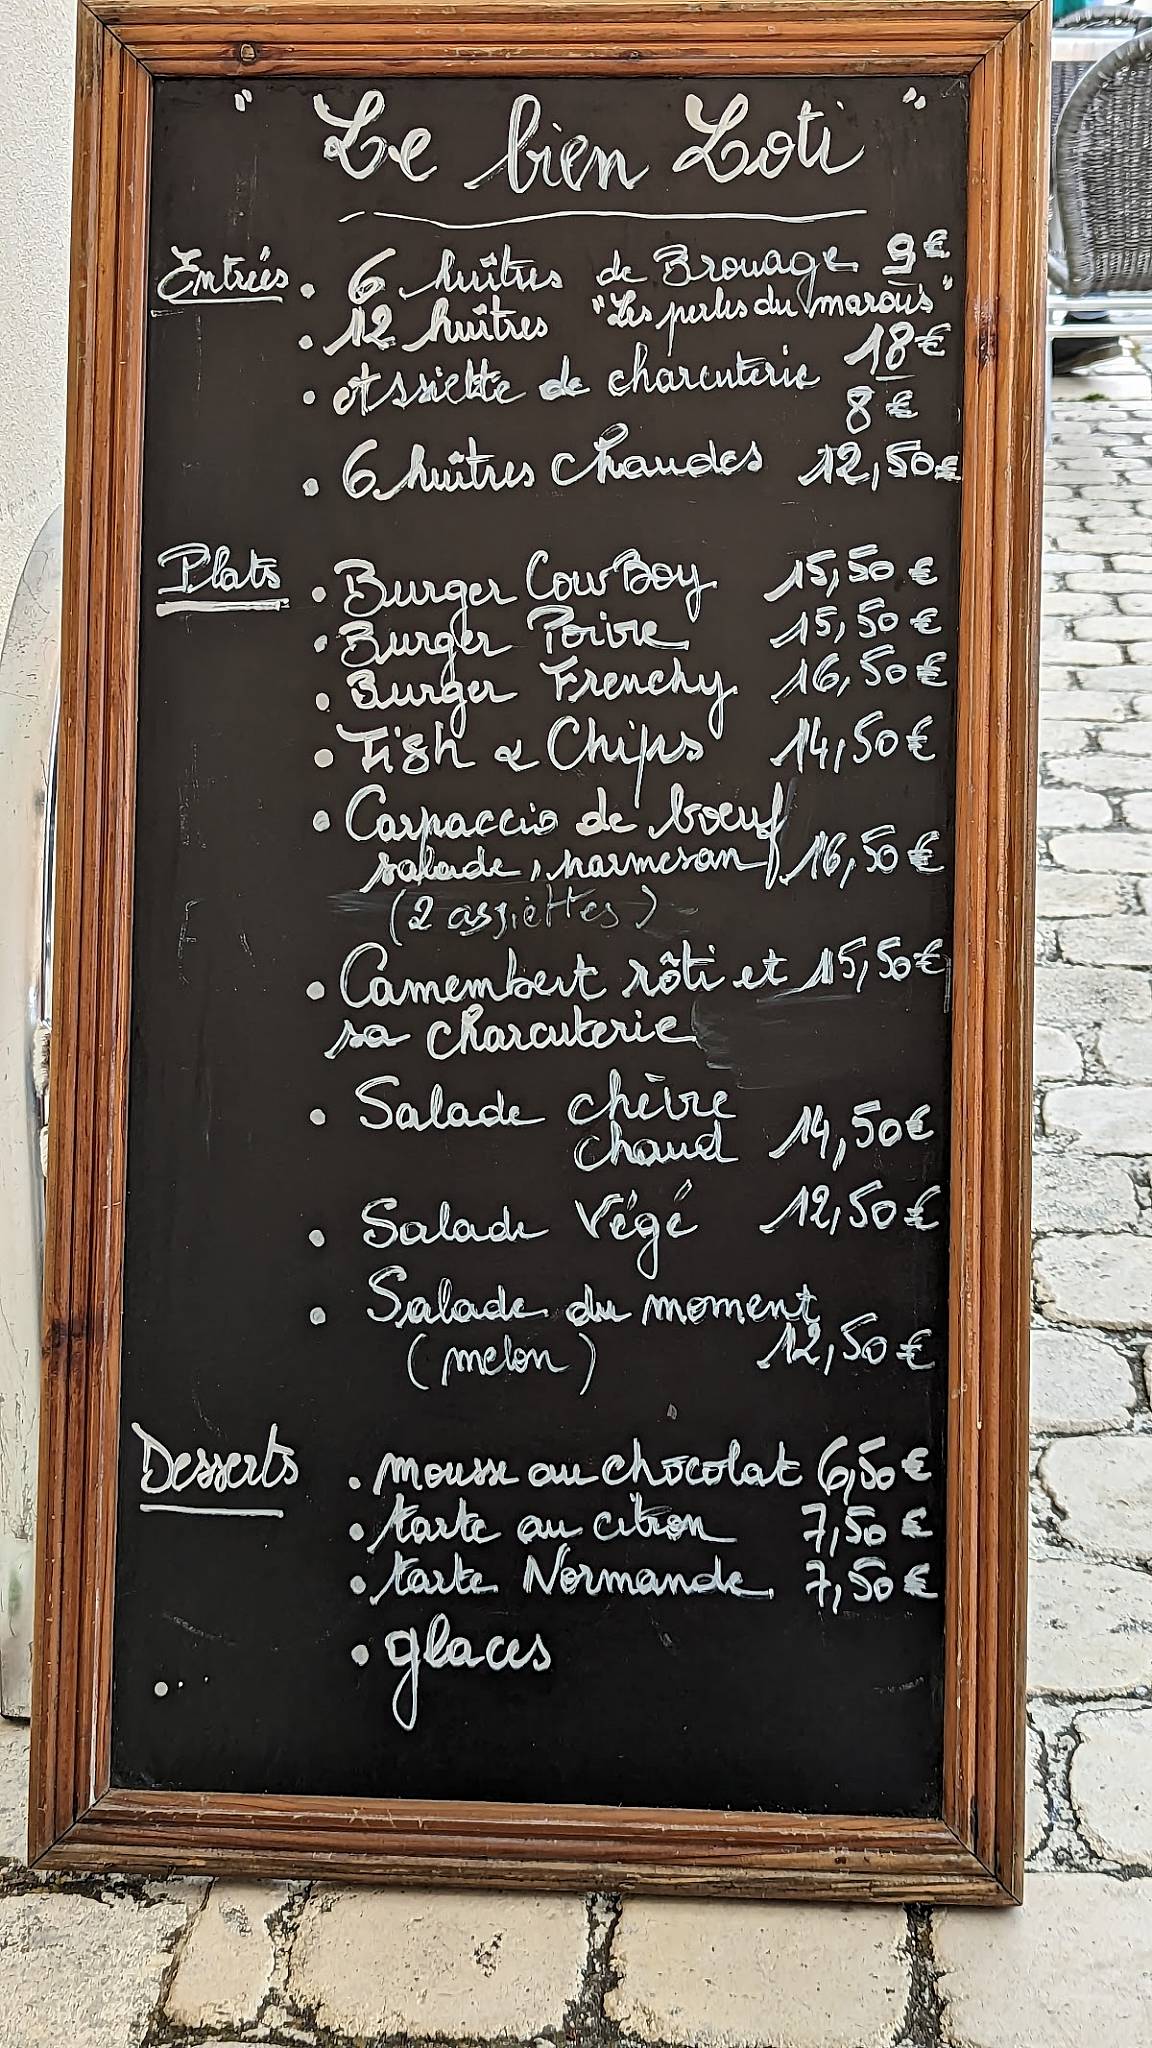 " Le bien Loti "
Entrées . 6 huîtres de Brouage 9€
. 12 huîtres "Les perles du marais" 18€
. Assiette de charcuterie
8€
. 6 huîtres chaudes 12,50€
Plats . Burger CowBoy 15,50€
. Burger Poivre 15,50€
. Burger Frenchy 16,50€
. Fish & Chips 14,50€
. Carpaccio de bœuf
salade, parmesan 16,50€
(2 assiettes)
. Camembert rôti et 15,50€
sa charcuterie
. Salade chèvre
chaud 14,50€
. Salade Végé 12,50€
. Salade du moment
(melon) 12,50€
Desserts . mousse au chocolat 6,50€
. tarte au citron 7,50€
. tarte Normande 7,50€
. glaces